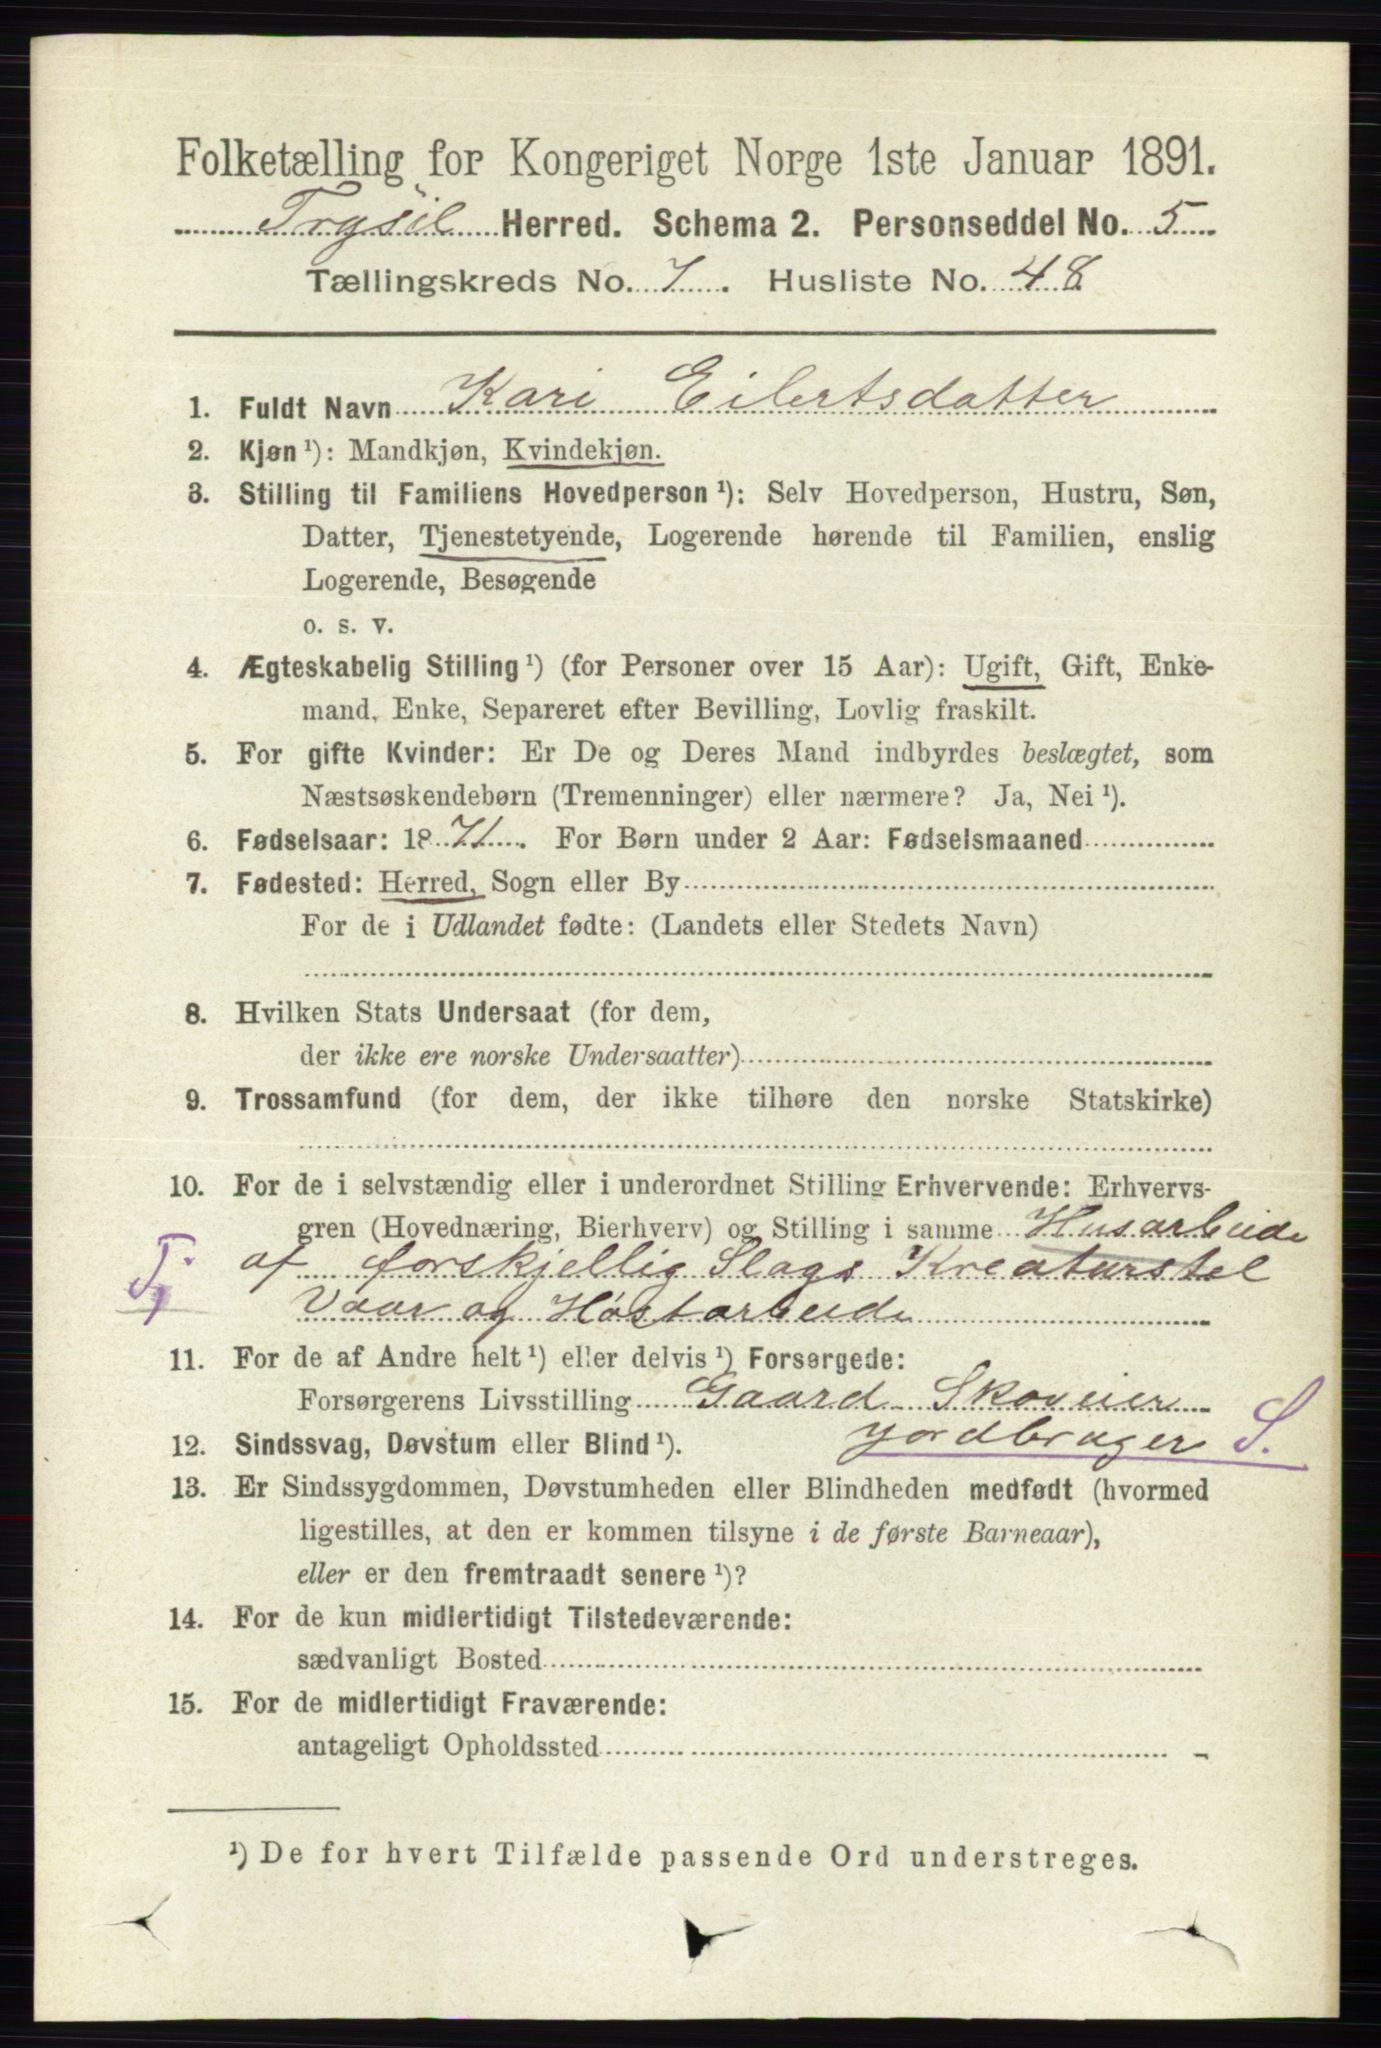 Folketælling for Kongeriget Norge 1ste Januar 1891.
Trysil Herred. Schema 2. Personseddel No. 5
Tællingskreds No. 7. Husliste No. 48
1. Fuldt Navn Kari Eilertsdatter
2. Kjøn ¹): Mandkjøn, Kvindekjøn.
3. Stilling til Familiens Hovedperson ¹): Selv Hovedperson, Hustru, Søn,
Datter, Tjenestetyende, Logerende hørende til Familien, enslig
Logerende, Besøgende
o. s. v.
4. Ægteskabelig Stilling ¹) (for Personer over 15 Aar): Ugift, Gift, Enke-
mand, Enke, Separeret efter Bevilling, Lovlig fraskilt.
5. For gifte Kvinder: Er De og Deres Mand indbyrdes beslægtet, som
Næstsøskendebørn (Tremenninger) eller nærmere? Ja, Nei ¹).
6. Fødselsaar: 1871. For Børn under 2 Aar: Fødselsmaaned
7. Fødested: Herred, Sogn eller By
For de i Udlandet fødte: (Landets eller Stedets Navn)
8. Hvilken Stats Undersaat (for dem,
der ikke ere norske Undersaatter)
9. Trossamfund (for dem, der ikke tilhøre den norske Statskirke)
10. For de i selvstændig eller i underordnet Stilling Erhvervende: Erhvervs-
gren (Hovednæring, Bierhverv) og Stilling i samme Husarbeide
af forskjellig Slags Kreaturstel
Vaar og Høstarbeide
11. For de af Andre helt ¹) eller delvis ¹) Forsørgede:
Forsørgerens Livsstilling Gaard Skoveier
jordbruger S.
12. Sindssvag, Døvstum eller Blind ¹).
13. Er Sindssygdommen, Døvstumheden eller Blindheden medfødt (hvormed
ligestilles, at den er kommen tilsyne i de første Barneaar),
eller er den fremtraadt senere ¹)?
14. For de kun midlertidigt Tilstedeværende:
sædvanligt Bosted
15. For de midlertidigt Fraværende:
antageligt Opholdssted
¹) De for hvert Tilfælde passende Ord understreges.